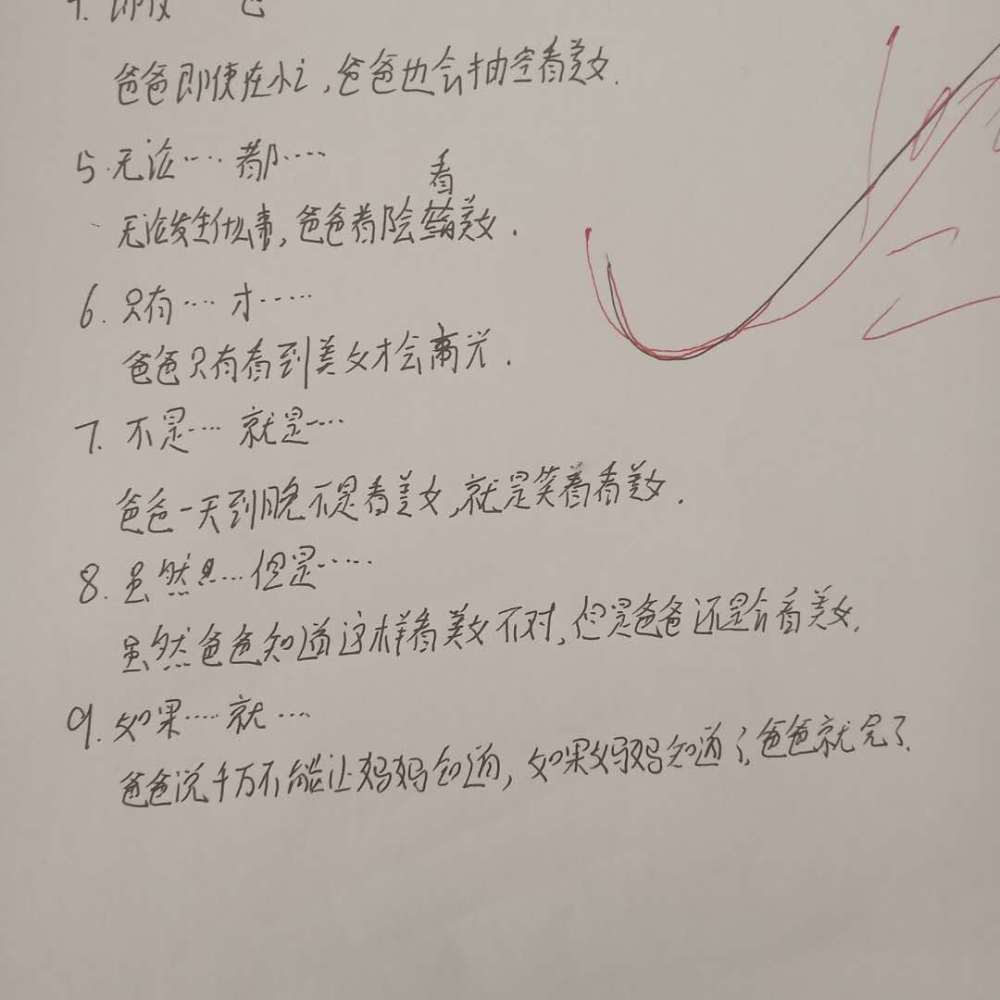 4. 即使 也
爸爸即使在办公,爸爸也会抽空看美女.
5. 无论…… 都……
看
无论发生什么事,爸爸都会看美女.
6. 只有…… 才……
爸爸只有看到美女才会高兴.
7. 不是…… 就是……
爸爸一天到晚不是看美女,就是笑着看美女.
8. 虽然…… 但是……
虽然爸爸知道这样看美女不对,但是爸爸还是会看美女.
9. 如果…… 就…
爸爸说千万不能让妈妈知道,如果妈妈知道了,爸爸就完了.